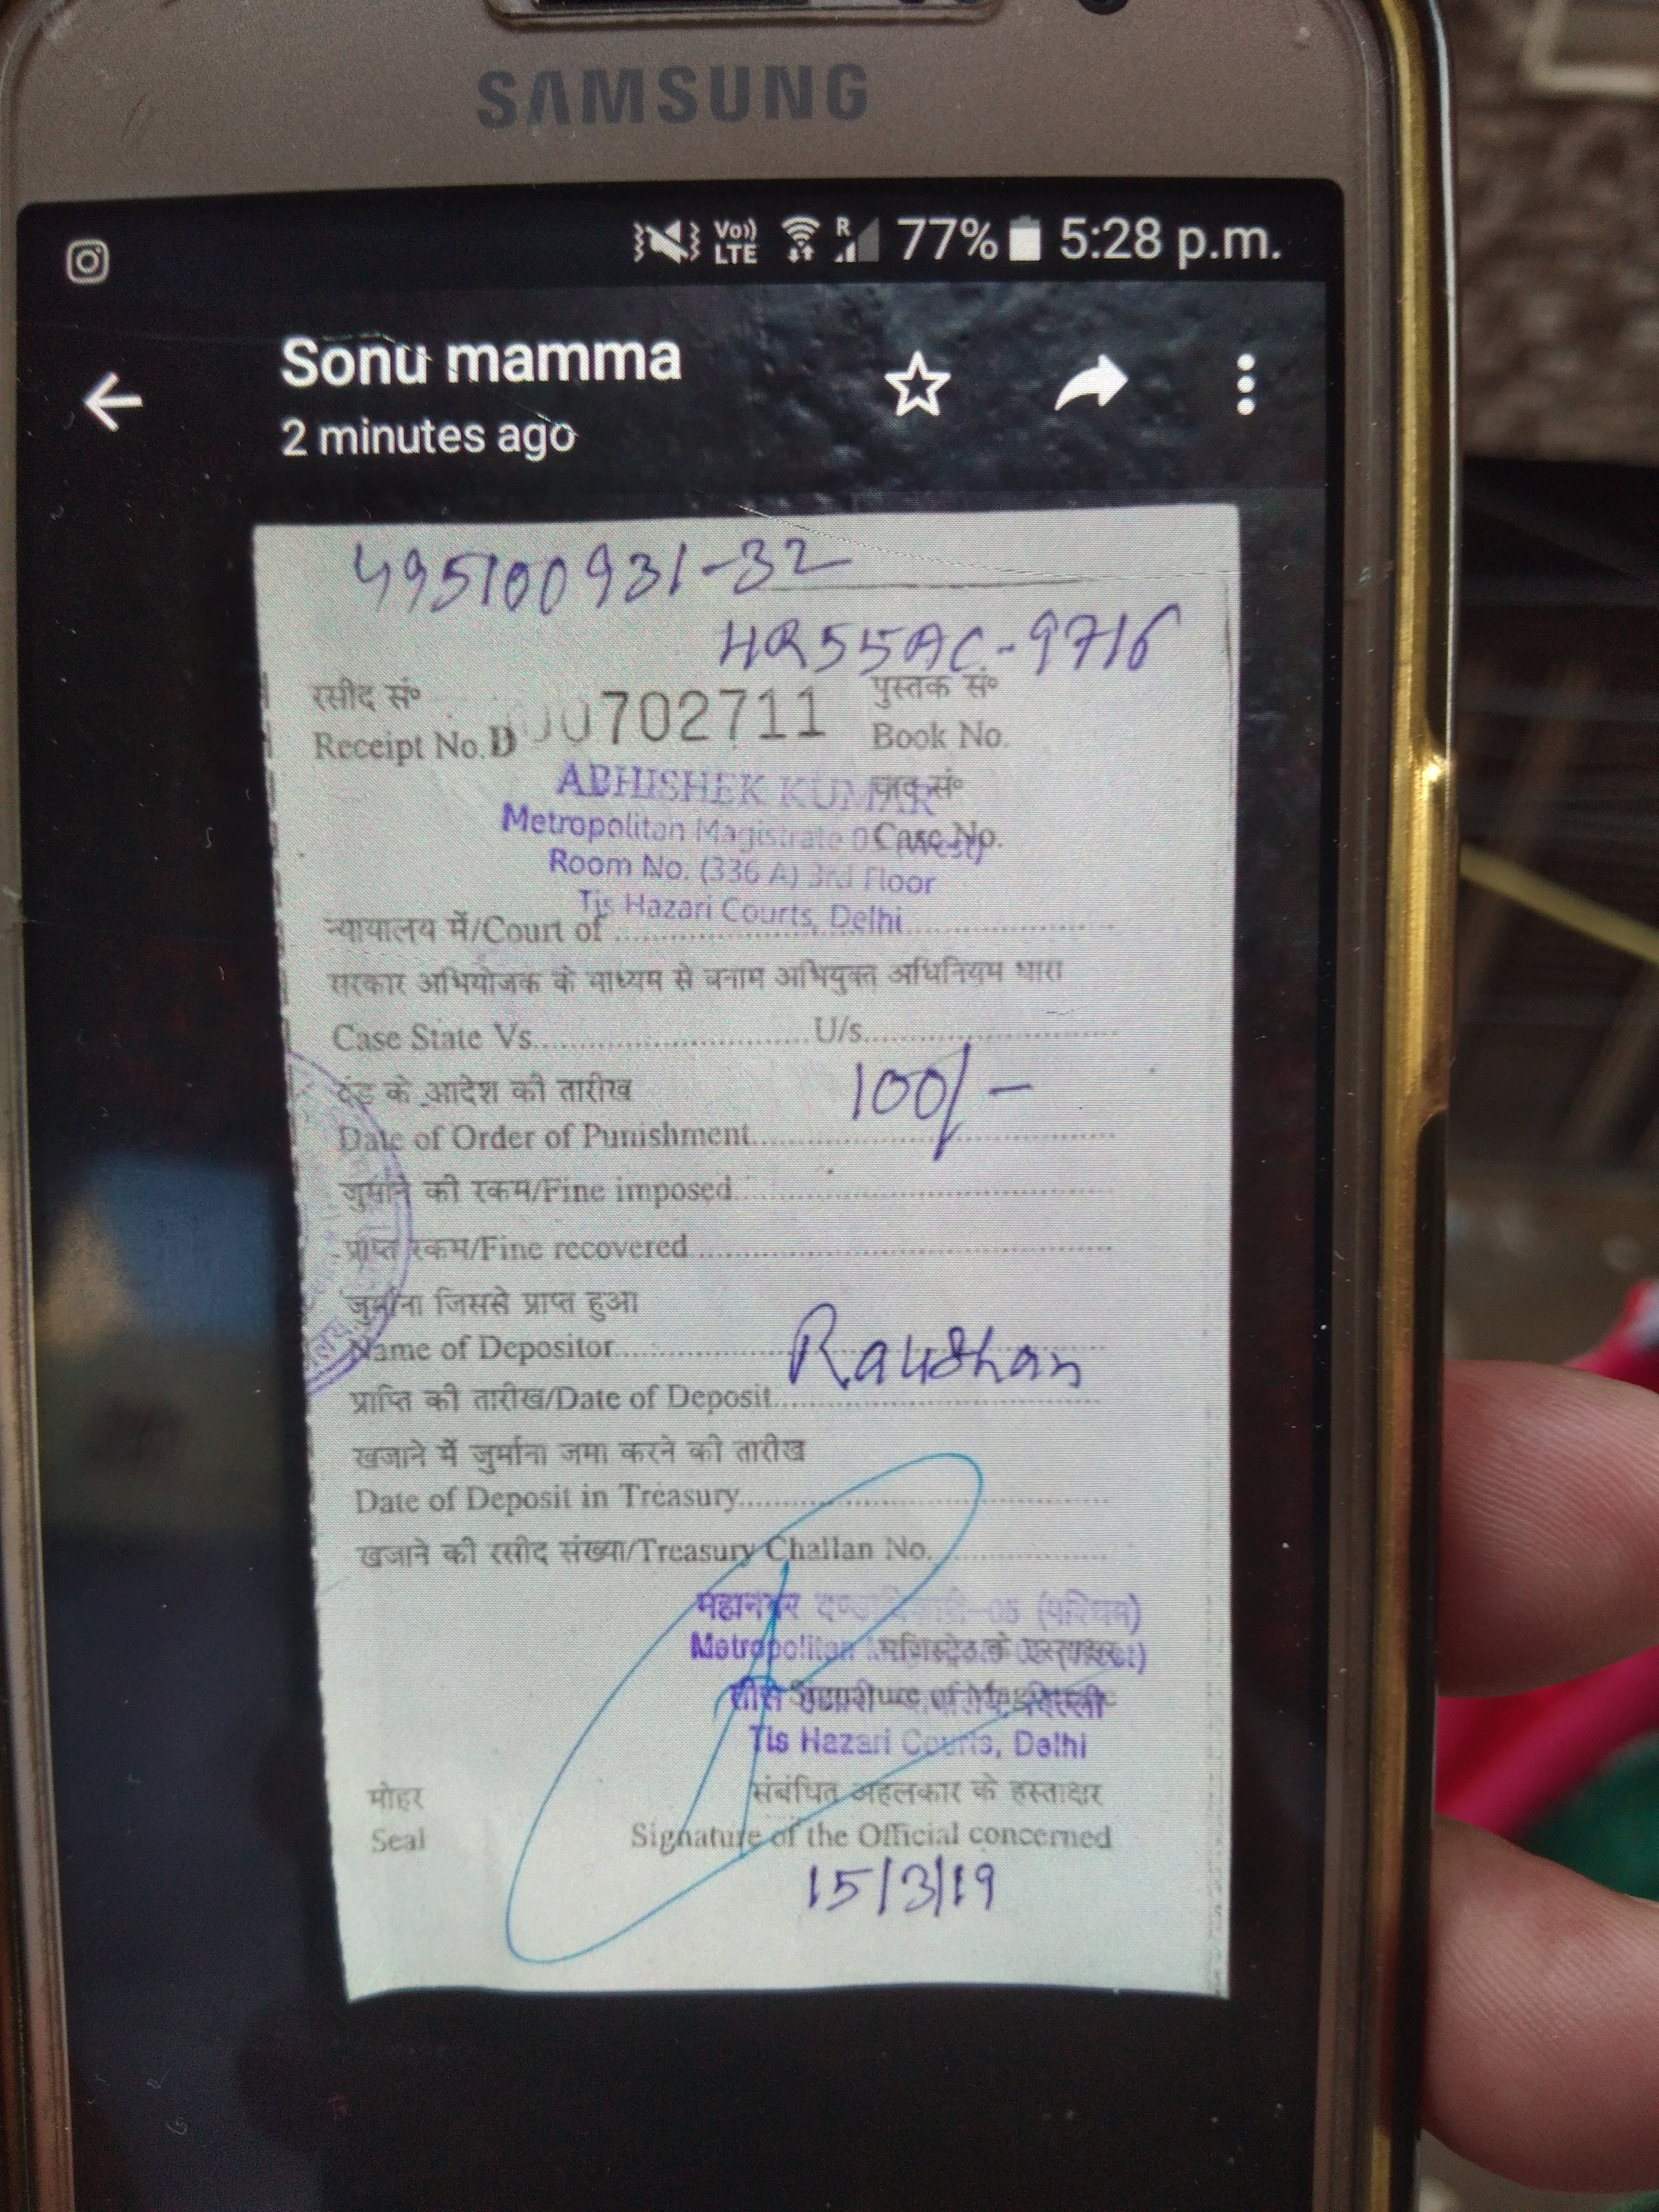 SAMSUNG
Vo)) LTE R 77% 5:28 p.m.
Sonu mamma
2 minutes ago
495100931-32
HR55AC-9716
रसीद सं० पुस्तक सं०
Receipt No. D 00702711 Book No.
ABHISHEK KUMAR
Metropolitan Magistrate Case No.
Room No. (336 A) 3rd Floor
Tis Hazari Courts, Delhi
न्यायालय में/Court of
सरकार अभियोजक के माध्यम से बनाम अभियुक्त अधिनियम धारा
Case State Vs. U/s.
दंड के आदेश की तारीख 100/-
Date of Order of Punishment
जुर्माने की रकम/Fine imposed
प्राप्त रकम/Fine recovered
जुर्माना जिससे प्राप्त हुआ
Name of Depositor
प्राप्ति की तारीख/Date of Deposit
खजाने में जुर्माना जमा करने की तारीख
Date of Deposit in Treasury
खजाने की रसीद संख्या/Treasury Challan No.
महानगर (पश्चिम)
Metropolitan
Tis Hazari Courts, Delhi
मोहर संबंधित अहलकार के हस्ताक्षर
Seal Signature of the Official concerned
15/3/19